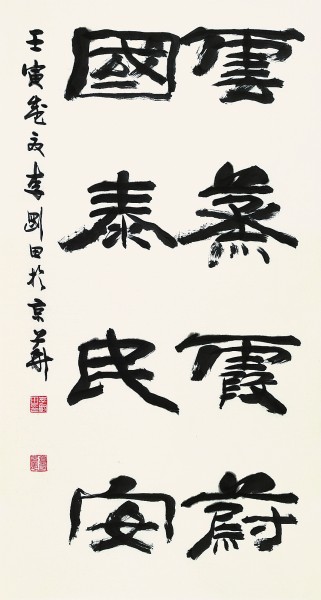 雲蒸霞蔚
國泰民安
壬寅年夏李剛田於京華